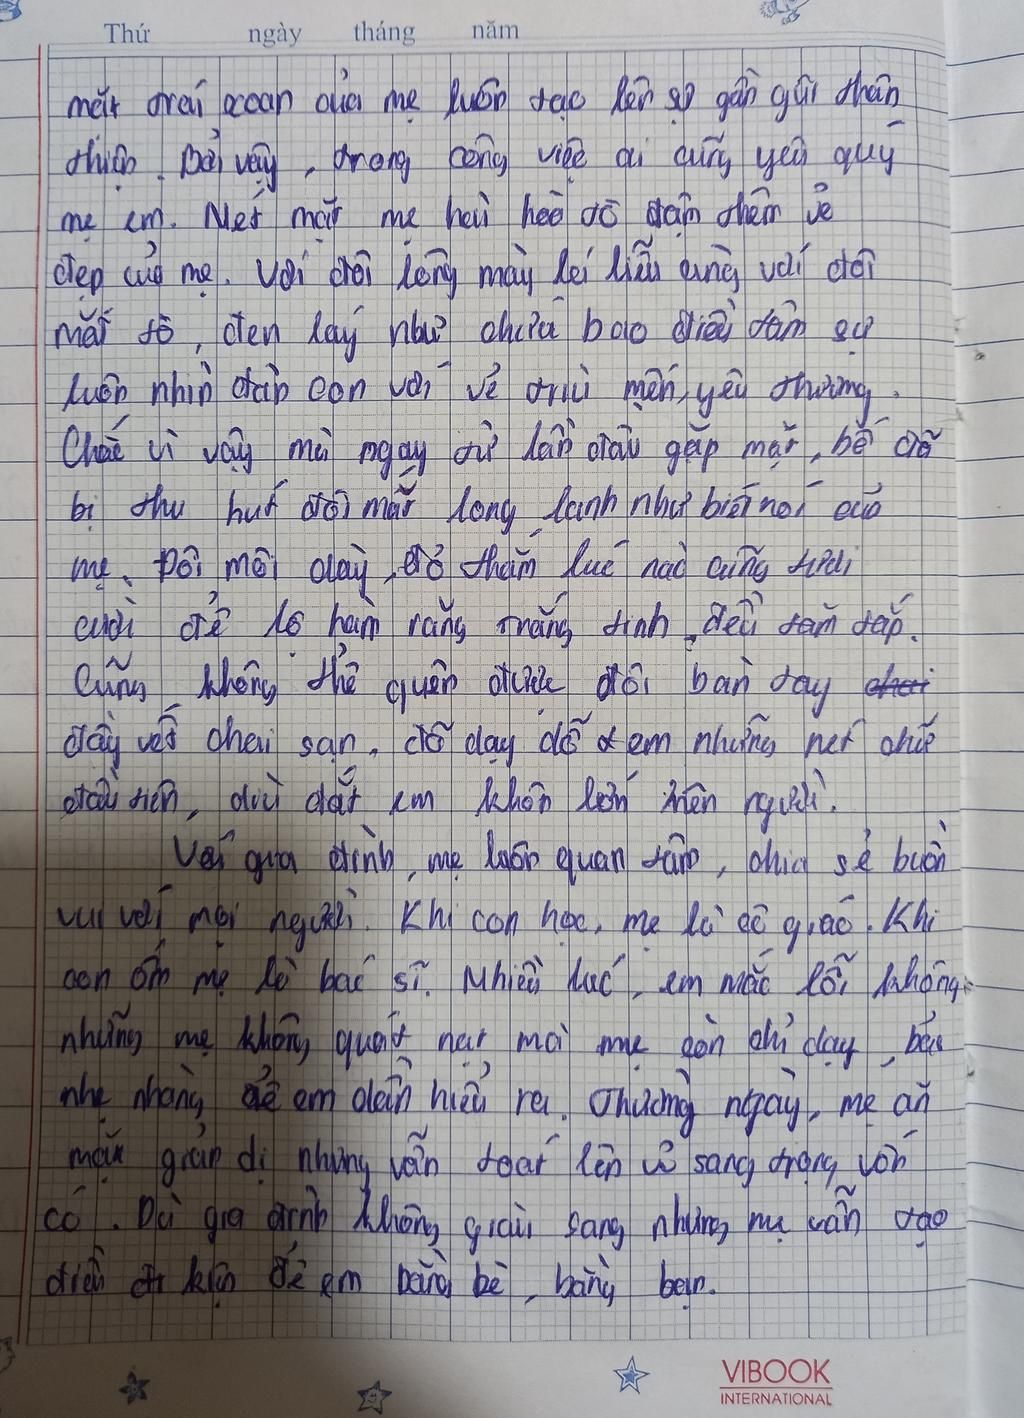 Thứ ngày tháng năm
mặt trái xoan của mẹ luôn tạo lên sự gần gũi thân
thiện. Bởi vậy, trong công việc ai cũng yêu quý
mẹ em. Nét mặt mẹ hài hoà tô đậm thêm vẻ
đẹp của mẹ. Với đôi lông mày lá liễu cùng với đôi
mắt to, đen láy như chứa bao điều tâm sự
luôn nhìn đàn con với vẻ trìu mến, yêu thương.
Chắc vì vậy mà ngay từ lần đầu gặp mặt, bố đã
bị thu hút đôi mắt long lanh như biết nói của
mẹ. Đôi môi dày, đỏ thắm lúc nào cũng tươi
cười để lộ hàm răng trắng tinh, đều tăm tắp.
Cũng không thể quên được đôi bàn tay chai
đầy vết chai sạn, đã dạy dỗ em những nét chữ
đầu tiên, dìu dắt em khôn lớn nên người.
Với gia đình, mẹ luôn quan tâm, chia sẻ buồn
vui với mọi người. Khi con học, mẹ là cô giáo. Khi
con ốm mẹ là bác sĩ. Nhiều lúc, em mắc lỗi không
những mẹ không quát nạt mà mẹ còn chỉ dạy, bảo
nhẹ nhàng để em dần hiểu ra. Thường ngày, mẹ ăn
mặc giản dị nhưng vẫn toát lên vẻ sang trọng vốn
có. Dù gia đình không giàu sang nhưng mẹ vẫn tạo
điều kiện để em bằng bè, bằng bạn.
VIBOOK
INTERNATIONAL